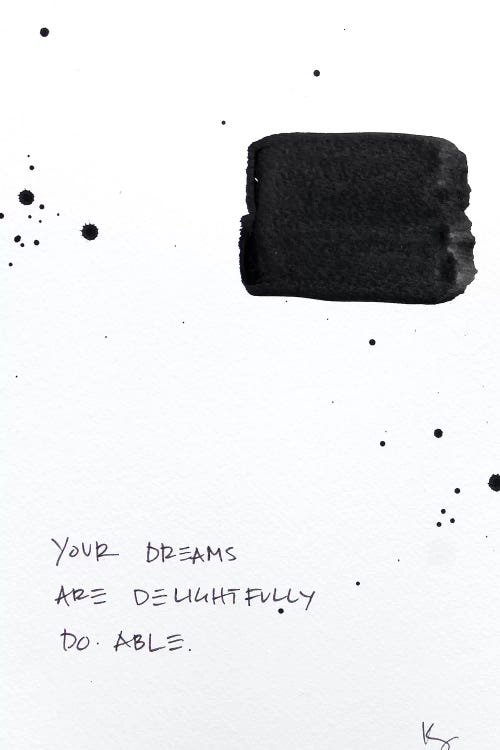 YOUR DREAMS
ARE DELIGHTFULLY
DO. ABLE.